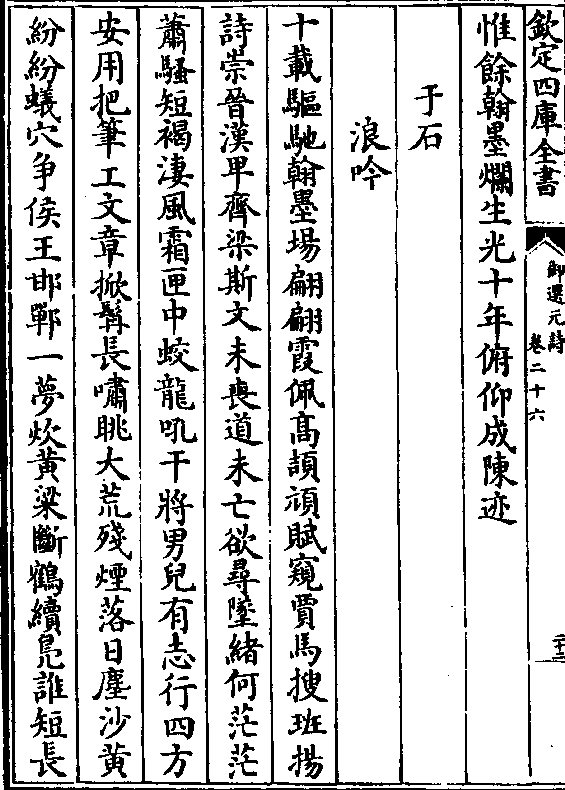 欽定四庫全書
御選元詩
卷二十六
二十三
惟餘翰墨爛生光十年俯仰成陳迹
于石
浪吟
十載驅馳翰墨場翩翩霞佩高頡頏賦窺賈馬搜班揚
詩崇晉漢卑齊梁斯文未喪道未亡欲尋墜緒何茫茫
蕭騷短褐淒風霜匣中蛟龍吼干將男兒有志行四方
安用把筆工文章掀髯長嘯眺大荒殘煙落日塵沙黄
紛紛蟻穴爭侯王邯鄲一夢炊黄粱斷鶴續鳧誰短長